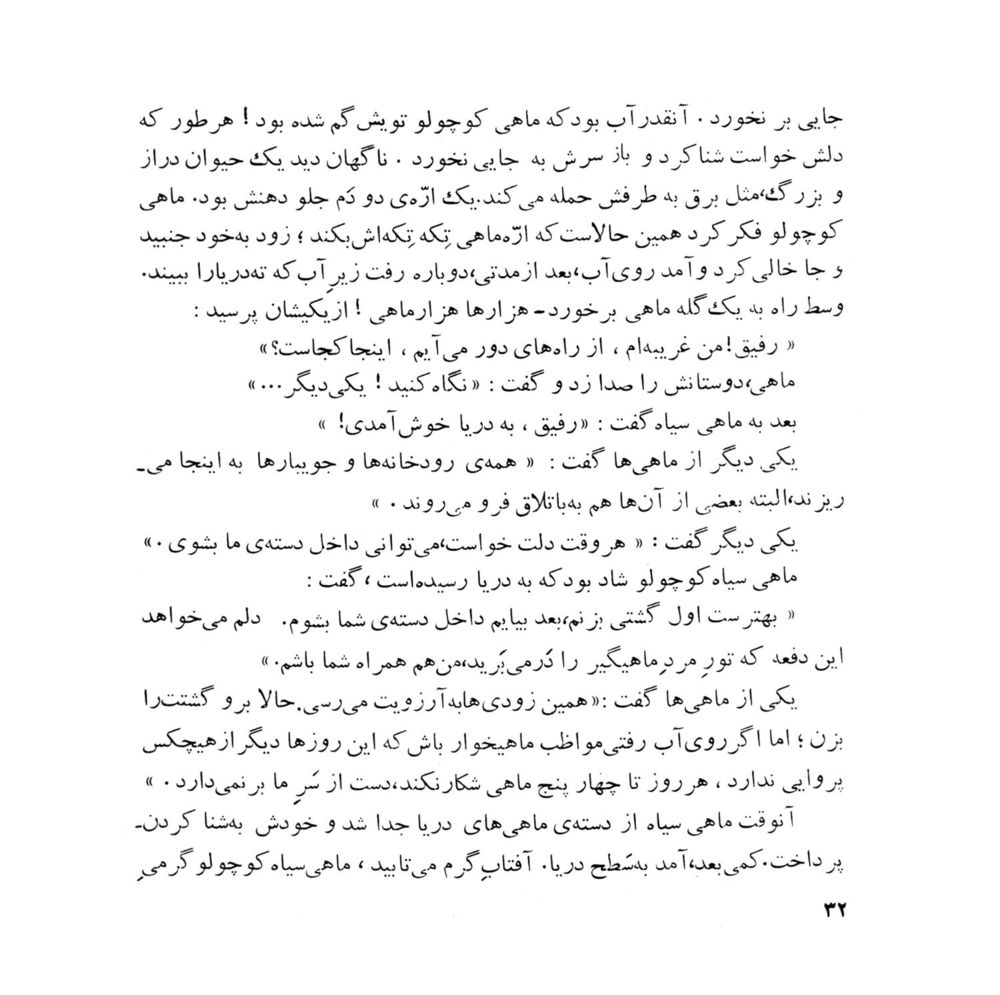 جایی بر نخورد. آنقدر آب بود که ماهی کوچولو تویش گم شده بود! هر طور که
دلش خواست شنا کرد و باز سرش به جایی نخورد. ناگهان دید یک حیوان دراز
و بزرگ، مثل برق به طرفش حمله می‌کند. یک ارّه‌ی دو دَم جلو دهنش بود. ماهی
کوچولو فکر کرد همین حالاست که ارّه‌ماهی تِکه تِکه‌اش بکند؛ زود به‌خود جنبید
و جا خالی کرد و آمد روی آب، بعد از مدتی، دوباره رفت زیرِ آب که ته‌دریا را ببیند.
وسط راه به یک گله ماهی برخورد ـ هزارها هزار ماهی! از یکیشان پرسید:
« رفیق! من غریبه‌ام، از راه‌های دور می‌آیم، اینجا کجاست؟»
ماهی، دوستانش را صدا زد و گفت: «نگاه کنید! یکی دیگر...»
بعد به ماهی سیاه گفت: «رفیق، به دریا خوش آمدی! »
یکی دیگر از ماهی‌ها گفت: « همه‌ی رودخانه‌ها و جویبارها به اینجا می‌ـ
ریزند، البته بعضی از آن‌ها هم به‌باتلاق فرو می‌روند. »
یکی دیگر گفت: « هر وقت دلت خواست، می‌توانی داخل دسته‌ی ما بشوی.»
ماهی سیاه کوچولو شاد بود که به دریا رسیده‌است، گفت:
« بهتر ست اول گشتی بزنم، بعد بیایم داخل دسته‌ی شما بشوم. دلم می‌خواهد
این دفعه که تورِ مردِ ماهیگیر را دَرمی‌بَرید، من هم همراه شما باشم.»
یکی از ماهی‌ها گفت: «همین زودی‌ها به‌آرزویت می‌رسی. حالا برو گشتت را
بزن؛ اما اگر روی آب رفتی مواظب ماهیخوار باش که این روزها دیگر از هیچکس
پروایی ندارد، هر روز تا چهار پنج ماهی شکار نکند، دست از سَرِ ما بر نمی‌دارد. »
آنوقت ماهی سیاه از دسته‌ی ماهی‌های دریا جدا شد و خودش به‌شنا کردن‌ـ
پرداخت. کمی بعد، آمد به‌سَطحِ دریا. آفتابِ گرم می‌تابید، ماهی سیاه کوچولو گرمیِ
۳۲